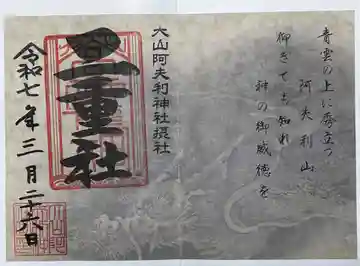 青雲の上に秀立つ
阿夫利山
仰ぎても知れ
神の御威徳を
大山阿夫利神社摂社
重社
令和七年三月二十六日